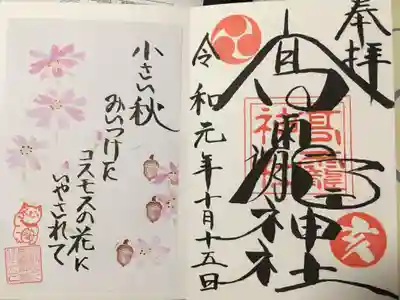 奉拝
髙龗
神社
亥
令和元年十月十五日
小さい秋
みいつけた
コスモスの花に
いやされて